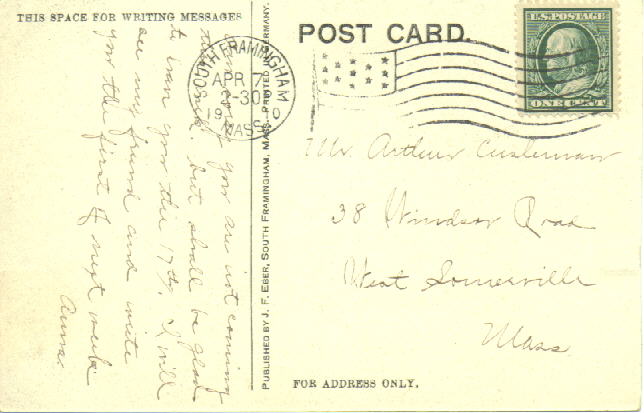 THIS SPACE FOR WRITING MESSAGES
POST CARD.
U.S. POSTAGE
ONE CENT
SOUTH FRAMINGHAM
APR 7
2-30P
19 0
MASS.
you are not coming
but shall be glad
to see you the 17th, I will
see my friend and write
you the first of next week
Anna.
PUBLISHED BY J. F. EBER, SOUTH FRAMINGHAM, MASS.—PRINTED GERMANY.
Mr. Arthur Cushman
38 Windsor Road
West Somerville
Mass
FOR ADDRESS ONLY.